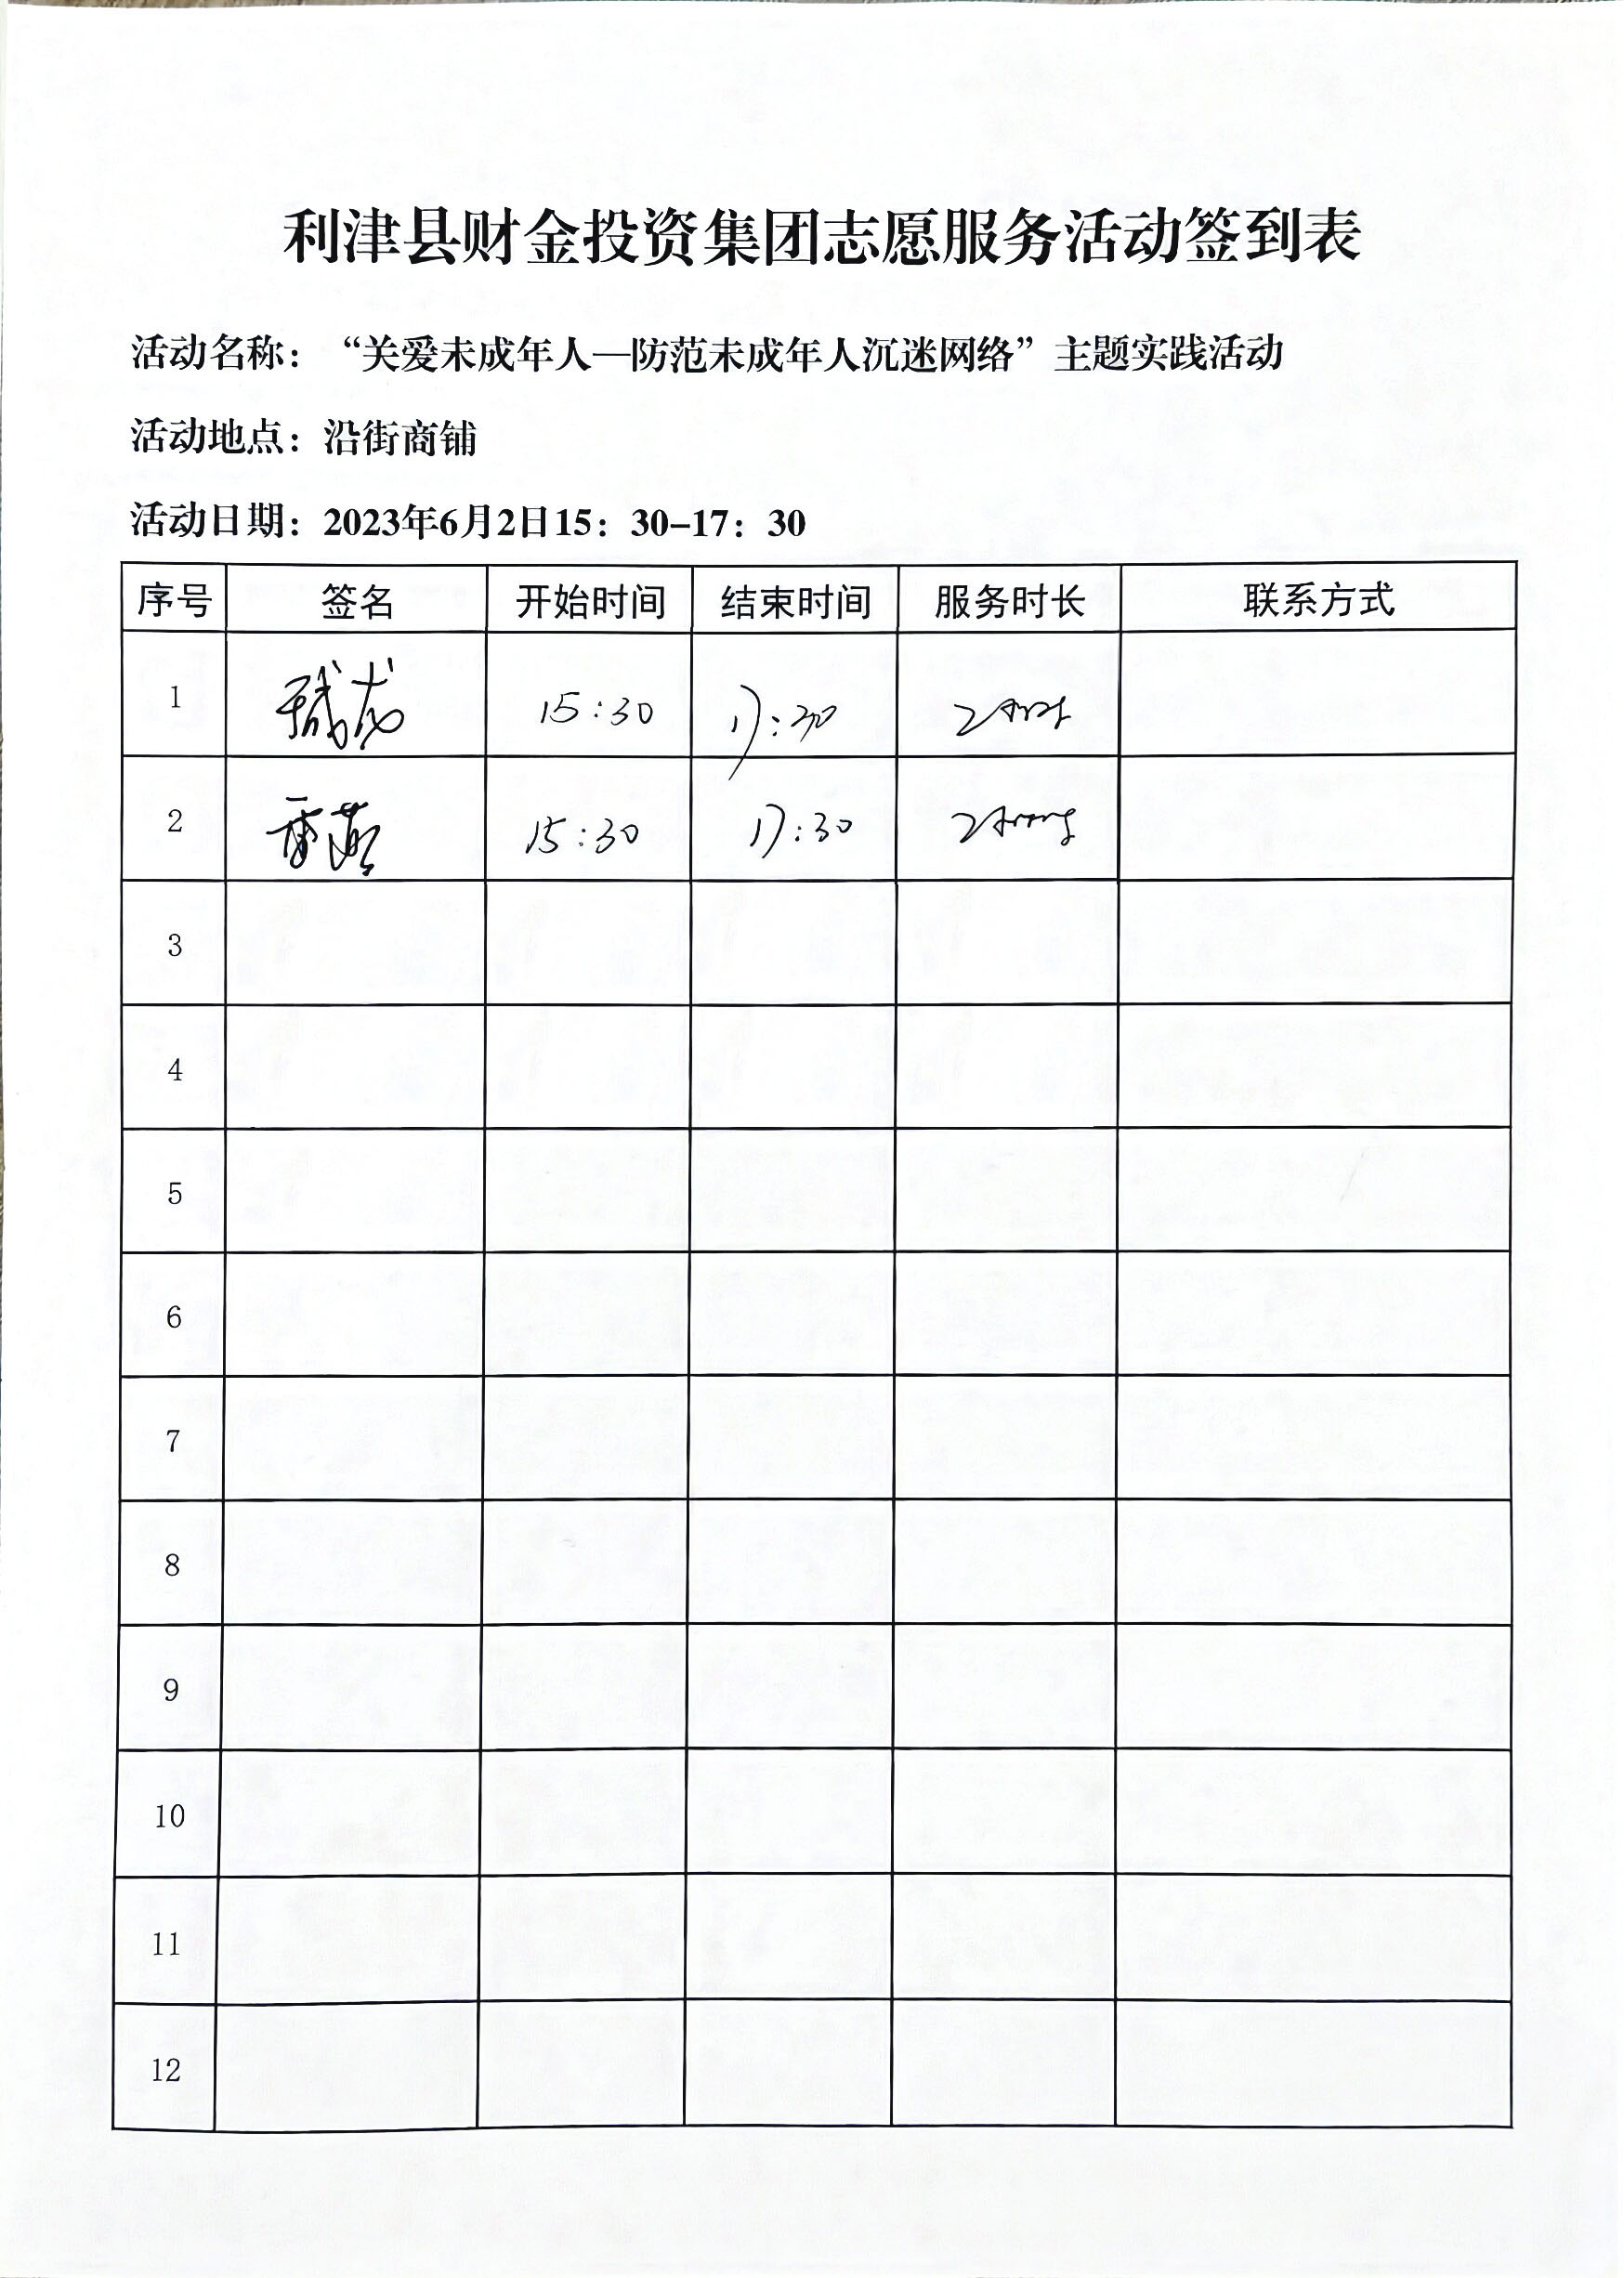 利津县财金投资集团志愿服务活动签到表
活动名称：“关爱未成年人—防范未成年人沉迷网络”主题实践活动
活动地点：沿街商铺
活动日期：2023年6月2日15：30-17：30
序号 签名 开始时间 结束时间 服务时长 联系方式
1 15:30 17:30 2小时
2 15:30 17:30 2小时
3
4
5
6
7
8
9
10
11
12